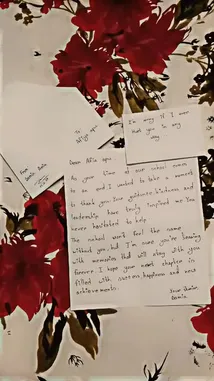 To
Afiya apu..
From
I'm sorry if I ever
hurt you in any
way
Dear Afia apu..
As your time at our school comes
to an end I wanted to take a moment
to thank you. Your guidance, kindness and
leadership have truly inspired me. You
never hesitated to help
The school won't feel the same
without you, but I'm sure you're leaving
with memories that will stay with you
forever. I hope your next chapter is
filled with success, happiness and new
achievements.
Your Junior,